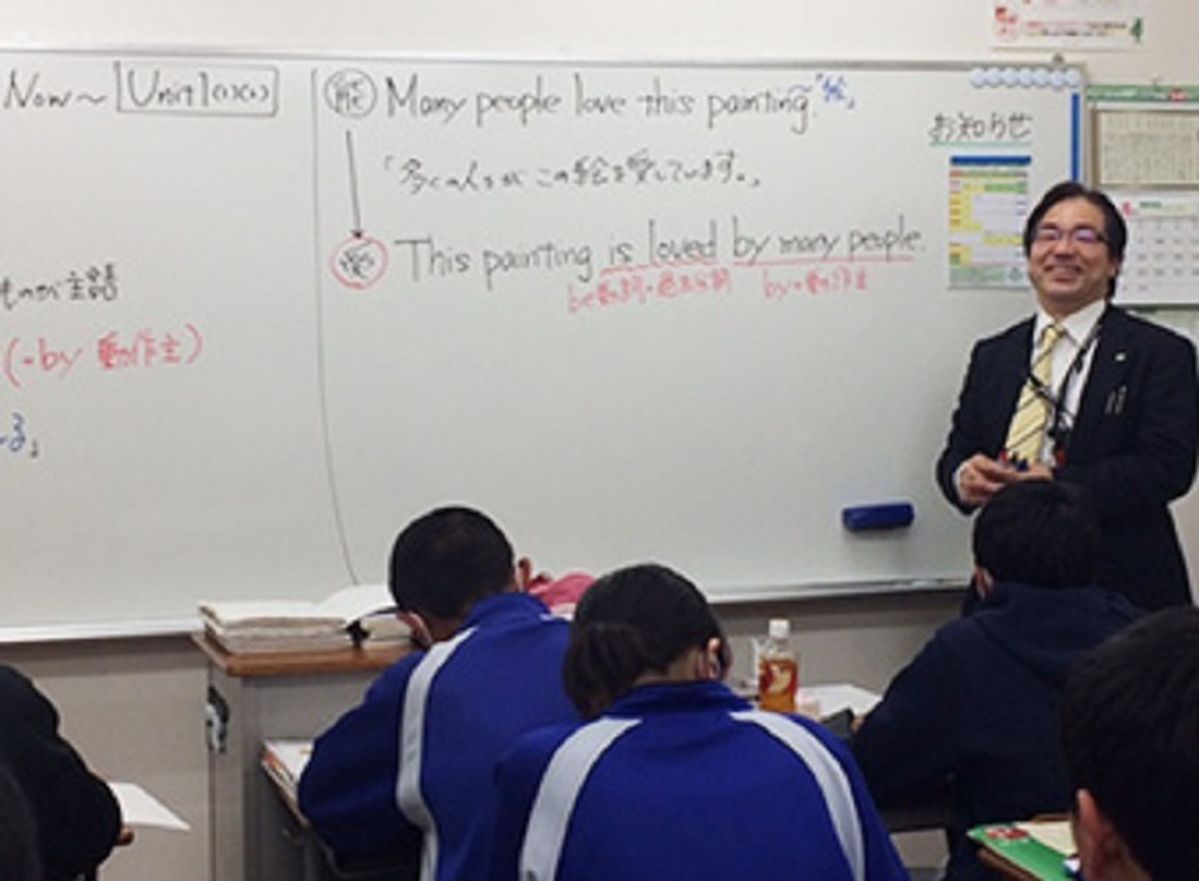 Now～ Unit1(1)(2)
主語
(・by 動作主)
る」
能 Many people love this painting. ～「絵」
「多くの人々がこの絵を愛しています。」
受 This painting is loved by many people.
be動詞+過去分詞 by+動作主
お知らせ